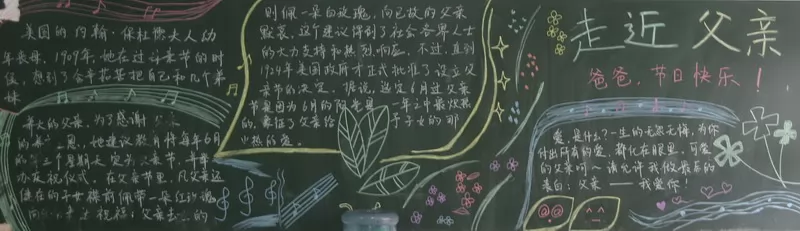 美国的约翰·保杜德夫人幼
年丧母,1909年,她在过母亲节的时
候,想到了含辛茹苦把自己和几个弟
妹
养大的父亲,为了感谢
恩,她提议教月将每年6月
的第三个星期天定为父亲节,每年
办庆祝仪式,在父亲节里,凡父亲还
健在的子女襟前佩带一朵红玫瑰
向 祝福;父亲去 的
则佩一朵白玫瑰,向已故的父亲
默哀,这个建议得到了社会各界人士
的大力支持和热烈响应,不过,直到
1924年美国政府才正式批准了设立父
亲节的决定,据说,选定6月过父亲
节是因为6月的阳光是一年之中最炽热
的,象征了父亲给予子女的那
火热的爱。
走近父亲
爸爸,节日快乐!
爱,是什么?一生的无怨无悔,为你
付出所有的爱,都化在眼里,可爱
的父亲呵~请允许我做最后的
表白:父亲——我爱你!